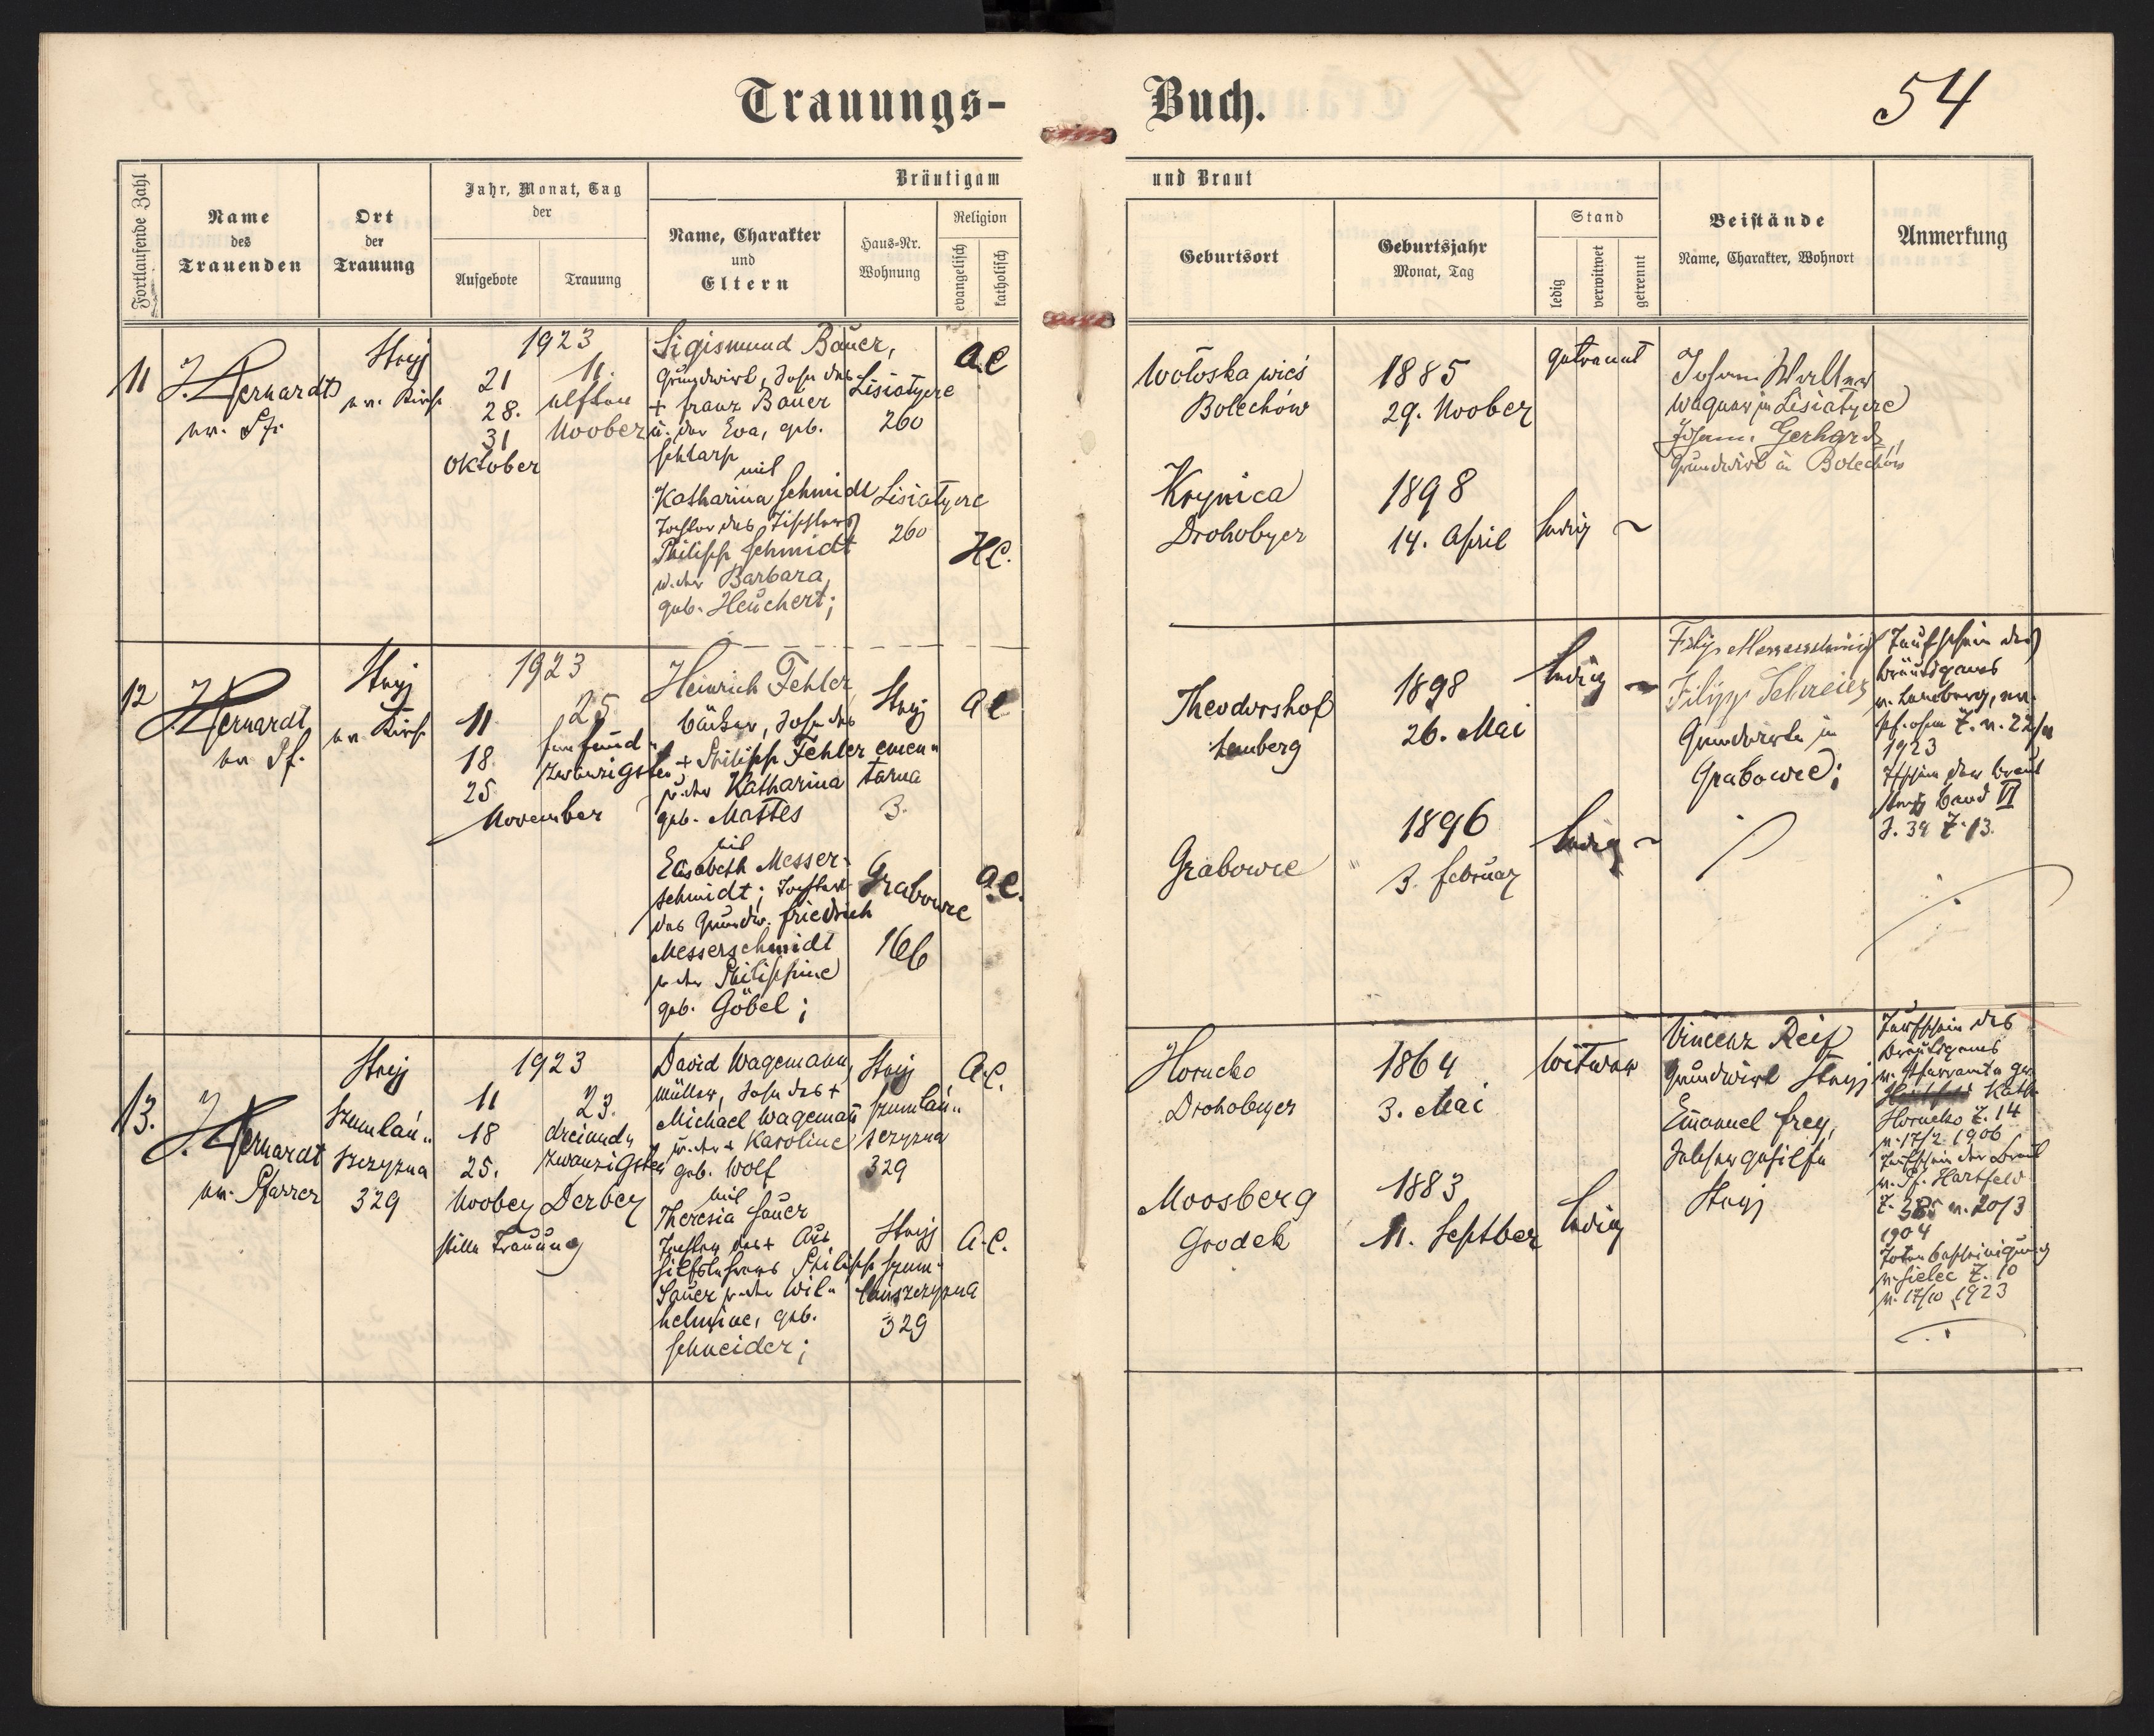 Trauungs- Buch.
54
Fortlaufende Zahl
Name
des
Trauenden
Ort
der
Trauung
Jahr, Monat, Tag
der
Aufgebote
Trauung
Bräutigam und Braut
Name, Charakter
und
Eltern
Haus-Nr.
Wohnung
Religion
evangelisch
katholisch
Geburtsort
Geburtsjahr
Monat, Tag
Stand
ledig
verwitwet
getrennt
Beistände
Name, Charakter, Wohnort
Anmerkung
11
ev. Pf.
Stryj
ev. Kirche
1923
21
28.
31
Oktober
11.
elften
Noober
Sigismund Bauer,
Grundwirt, Sohn des
+ Franz Bauer
u. der Eva, geb.
Schlarp
mit
Katharina Schmidt
Tochter des Tischlers
Philipp Schmidt
u. der Barbara,
geb. Heuchert;
Lisiatycze
260
Lisiatycze
260
A.C
H.C.
Wołoska wieś
Bolechów
1885
29. Noober
getrennt
Krynica
Drohobycz
1898
14. April
ledig
Johann Walter
Wagner in Lisiatycze
Johann Gerhardt,
Grundwirt in Bolechów
12
ev. Pf.
Stryj
ev. Kirche
1923
11
18.
25
November
25
fünfund-
zwanzigsten
Heinrich Fehler
Bäcker, Sohn des
+ Philipp Fehler
u. der Katharina
geb. Mattes
mit
Elisabeth Messer-
schmidt; Tochter
des Grundw. Friedrich
Messerschmidt
u. der Philippine
geb. Göbel;
Stryj
cmen-
tarna
3.
Grabowce
166
A C
A.C.
Theodorshof
Lemberg
1898
26. Mai
ledig
Grabowce
1896
3. Februar
ledig
Filip Messerschmidt
Filipp Schreier
Grundwirte in
Grabowce;
Taufschein des
Bräutigams
v. Lemberg, ev.
1923
der Braut
Stryj Band VI
S. 34 Z. 13.
13.
ev. Pfarrer
Stryj
Szumlań-
szczyzna
329
1923
11
18
25.
Noober
23.
dreiund-
zwanzigsten
Dezber
stille Trauung
David Wagemann,
Müller, Sohn des +
Michael Wagemann
u. der + Karoline
geb. Wolf
mit
Theresia Sauer
Tochter des + Aus
hilfslehrers Philipp
Sauer u. der Wil-
helmine, geb.
Schneider;
Stryj
Szumlań-
szczyzna
329
Stryj
Szum-
lańszczyzna
329
A.C.
A.C.
Horucko
Drohobycz
1864
3. Mai
Witwer
Moosberg
Grodek
1883
11. Septber
ledig
Vincenz Reif
Grundwirt Stryj
Emanuel Frey,
Selchergehilfe
Stryj
Taufschein des
Bräutigams
v. Pfarramte
Kath.
Horucko Z. 14
v. 17/2 1906
Taufschein der Braut
v. Pf. Hartfeld
v. 20/3
1904
Totenbescheinigung
v. Sielec Z. 10
v. 17/10 1923